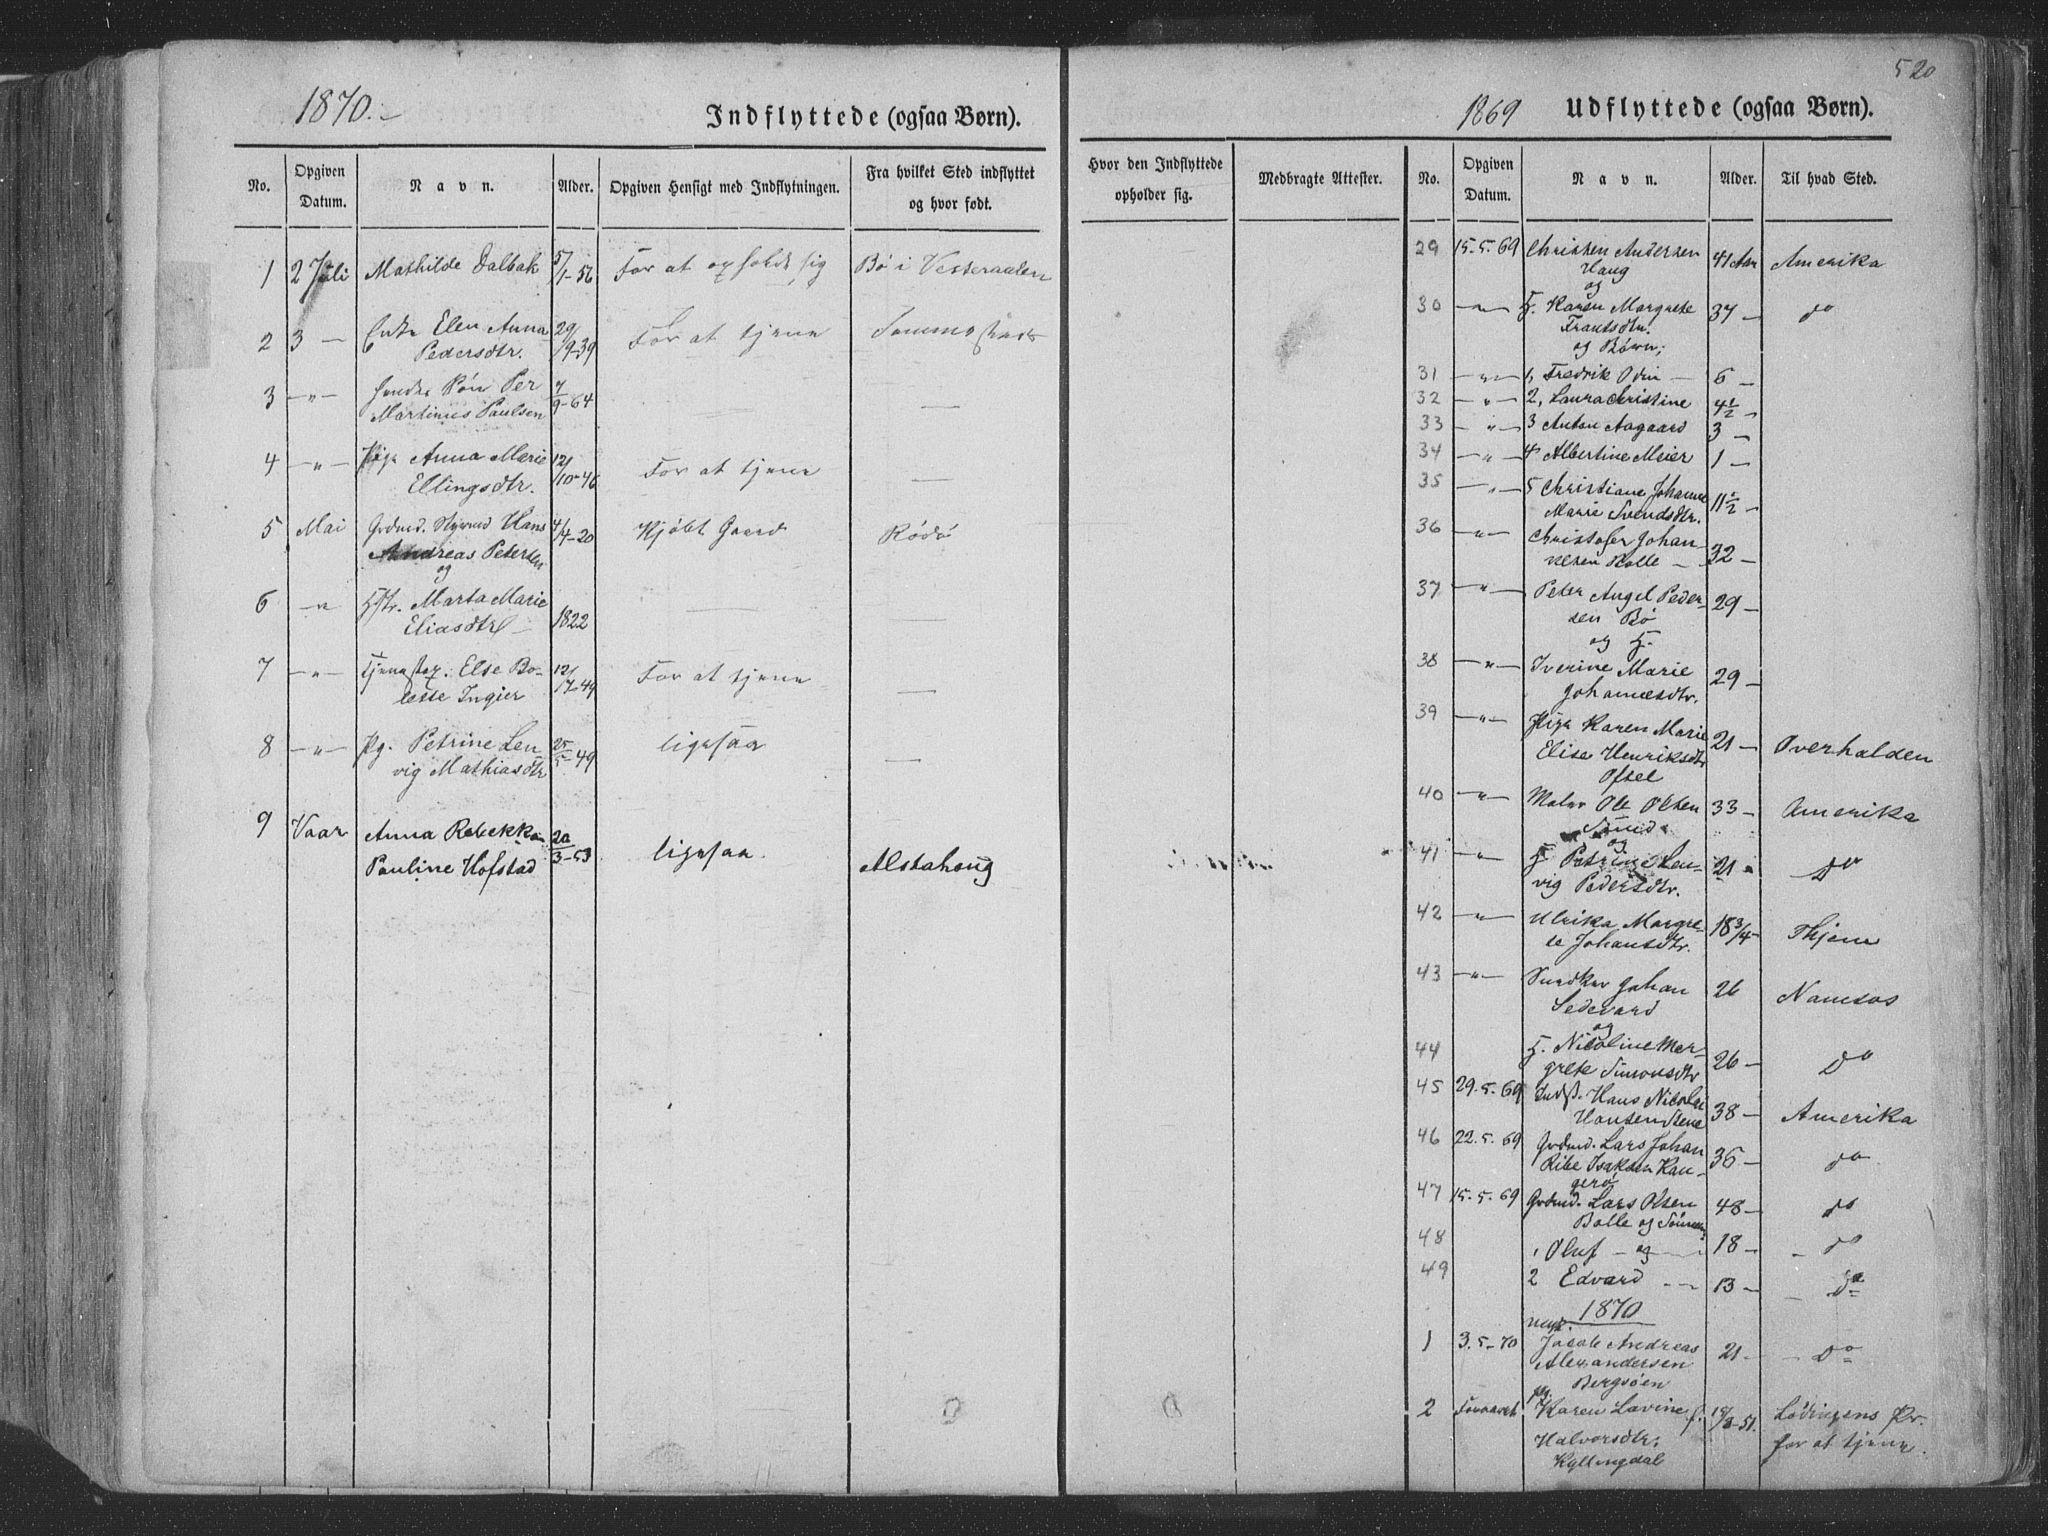 1870.
Indflyttede (ogsaa Børn).
No. Opgiven Datum. Navn. Alder. Opgiven Hensigt med Indflytningen. Fra hvilket Sted indflyttet og hvor født.
1 2 Juli Mathilde Dalbak 5/1-56 For at opholde sig Bø i Vesteraalen
2 3 — Enke Elen Anna 29/9-39 For at tjene
Pedersdtr.
3 —"— Søn Per 9-64 — —
Martinus Paulsen
4 —"— Pige Anna Marie 12/10-46 For at tjene —
Ellingsdtr.
5 Mai Grdmd. Hans 4/4-20 Kjøbt Gaard Rødø
Andreas Petersen
og
6 —" Hstr. Marta Marie 1822 — —
Eliasdtr —
7 —"— Else Bo- 12/17-49 For at tjene —
lette Ingier
8 —"— Pg. Petrine Len- 25/5-49 ligesaa —
vig Mathiasdtr
9 Vaar Anna Rebekka 20/3-53 ligesaa. Alstahoug
Pauline Hofstad
520
1869
Udflyttede (ogsaa Børn).
Hvor den Indflyttede opholder sig. Medbragte Attester. No. Opgiven Datum. Navn. Alder. Til hvad Sted.
29 15.5.69 Christen Andersen 41 Aar Amerika
Haug
og
30 —"— H. Karen Margrete 37 — do
Frantsdtr.
og Børn;
31 —"— 1, Fredrik Odin — 6 —
32 —"— 2, Laura Christine 4½ —
33 —"— 3 Anton Aagaard 3 —
34 —"— 4 Albertine Meier 1 —
35 —"— 5 Christiane Johanne 11½ —
Marie Svendsdtr.
36 —"— Christofer Johan- 32 —
nesen Bolle —
37 —"— Peter Angel Peder- 29 —
sen Bø
og H.
38 —"— Iverine Marie 29 —
Johannesdtr.
39 —"— Pige Karen Marie 21 — Overhalden
Elise Henriksdtr
Oftel
40 —"— Maler Ole Olsen 33 — Amerika
Sund
og
41 —"— H. Petrine Len- 21 Do
vig Pedersdtr.
42 —"— Ulrika Margre- 18 3/4 —
te Johansdtr.
43 —"— Snedker Johan 26 Namsos
Sedevard
og
44 H. Nicoline Mar- 26 — Do
grete Simonsdtr
45 29.5.69 Indst. Hans Nicolai 38 — Amerika
Hansen Stene
46 22.5.69 Grdmd. Lars Johan 36 — do
Ribe Isaksen Kan-
gerø
47 15.5.69 Grdmd. Lars Olsen 48 — do
Bolle og Sønner
48 1 Oluf — og 18 — do
49 2 Edvard 13 — do
1870
1 3.5.70 Jacob Andreas 21 — Do
Alexandersen
Bergsøen
2 Foraaret Pg. Karen Lavine f. 18/3-51. Lødingens Pr.
Halvorsdtr. for at tjene.
Kyllingdal